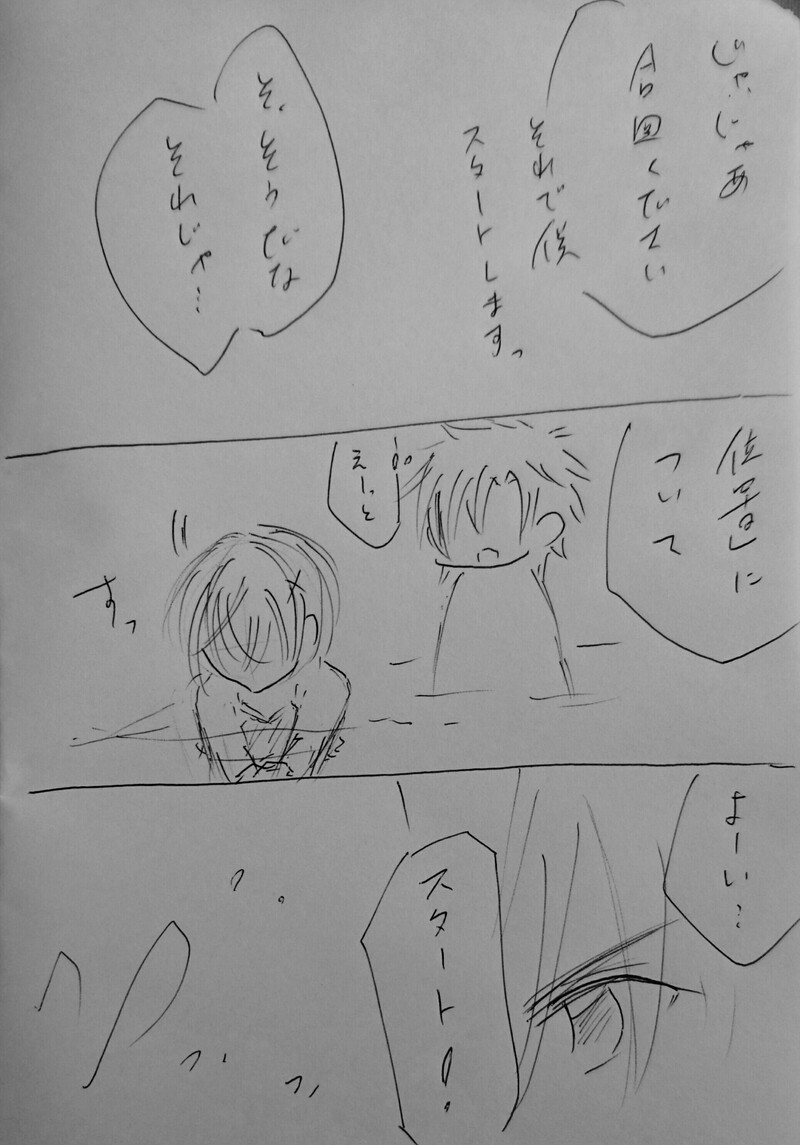 じゃ、じゃあ
合図ください
それで僕
スタートしますっ
そ、そうだな
それじゃ…
位置に
ついて
えーっと
すっ
よーい…
スタート!